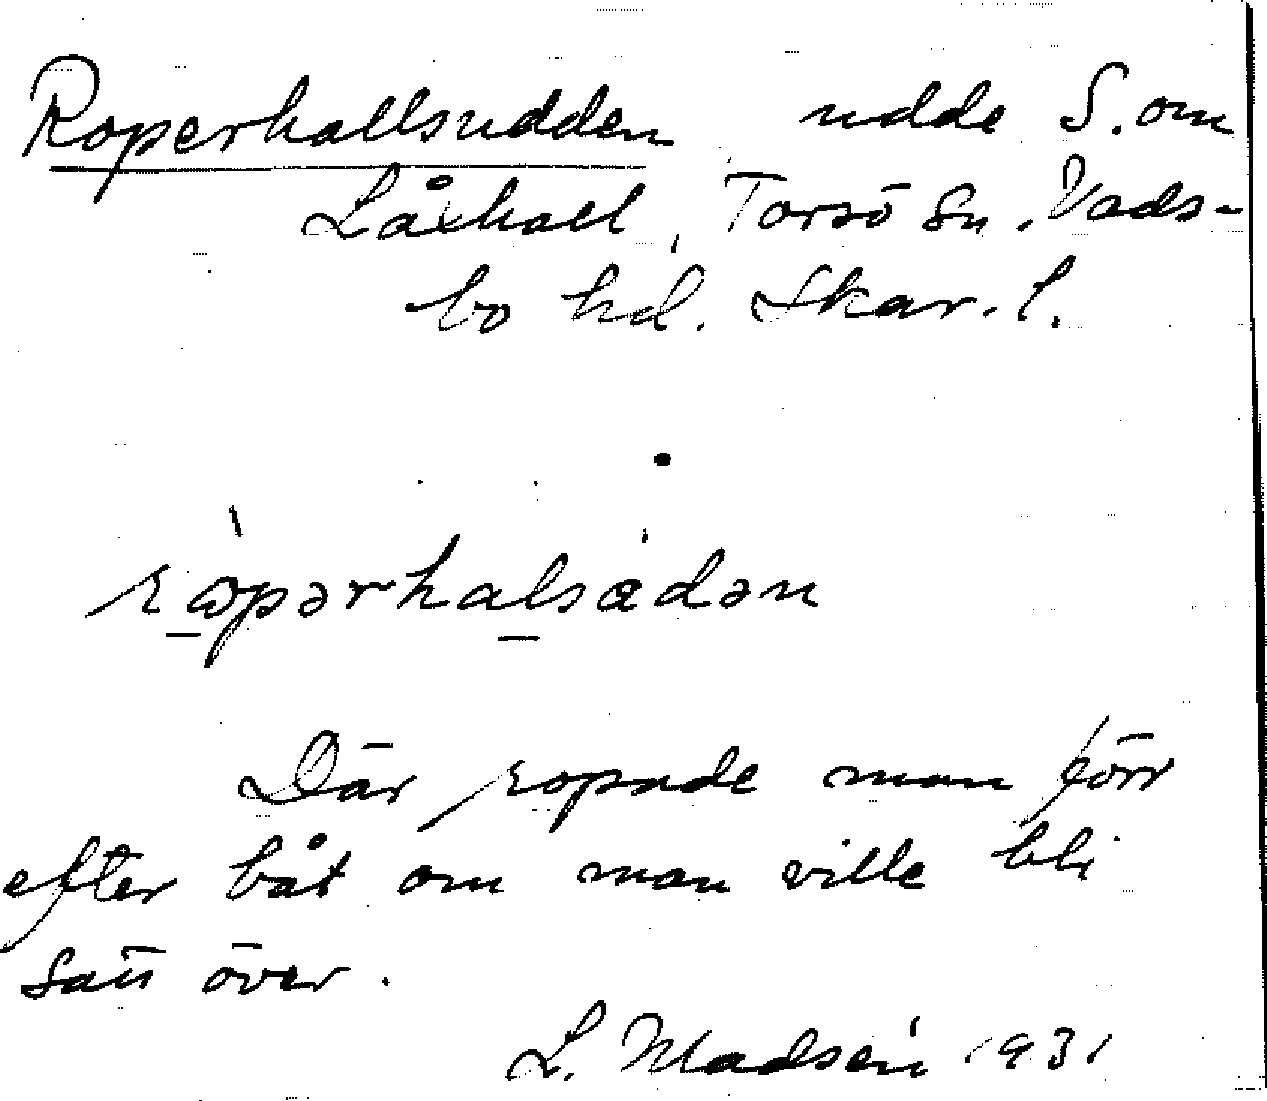 Roperhallsudden udde S. om
Låxhall, Torsö sn, Vads-
bo hd. Skar. l.
ròpərhalsadən
Där ropade man förr
efter båt om man ville bli
satt över.
L. Madsén 1931